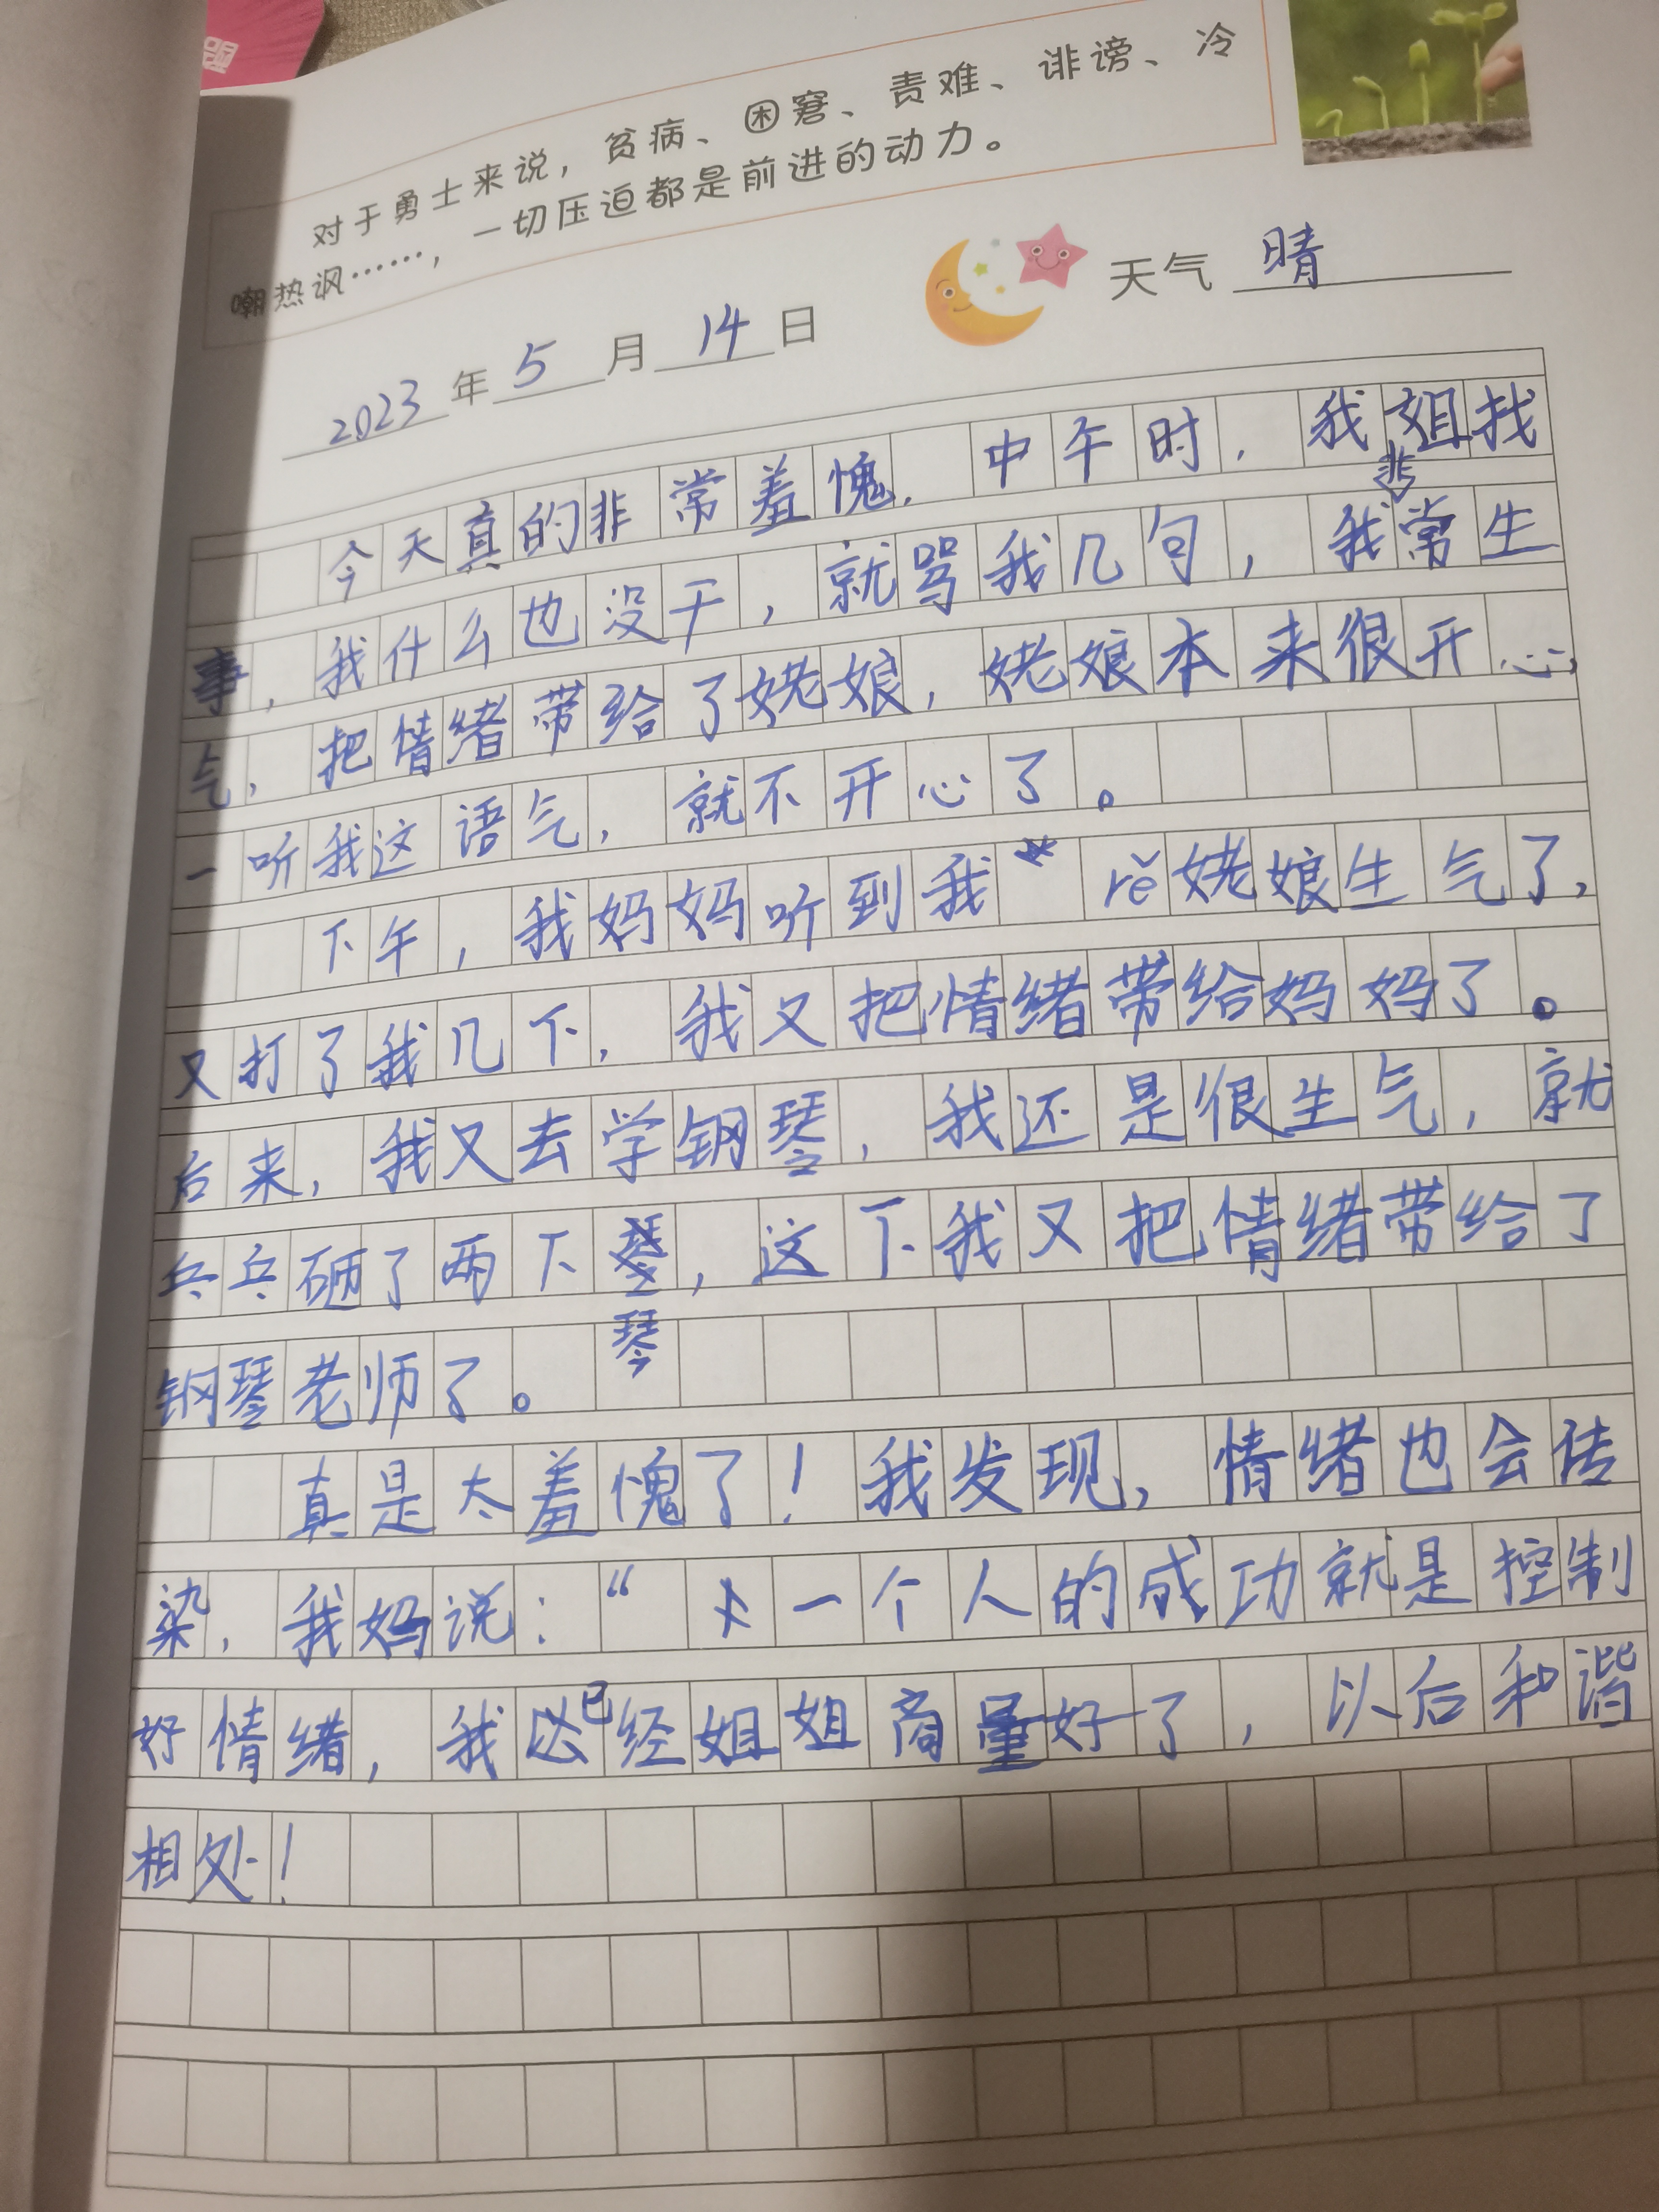 对于勇士来说，贫病、困窘、责难、诽谤、冷
嘲热讽……，一切压迫都是前进的动力。
2023年5月14日 天气 晴
今天真的非常羞愧．中午时，我姐找
事，我什么也没干，就骂我几句，我非常生
气，把情绪带给了姥娘，姥娘本来很开心，
一听我这语气，就不开心了。
下午，我妈妈听到我rě姥娘生气了，
又打了我几下，我又把情绪带给妈妈了。
后来，我又去学钢琴，我还是很生气，就
乒乓砸了两下琴，这下我又把情绪带给了
钢琴老师了。
真是太羞愧了！我发现，情绪也会传
染，我妈说：“一个人的成功就是控制
好情绪，我已经姐姐商量好了，以后和谐
相处！